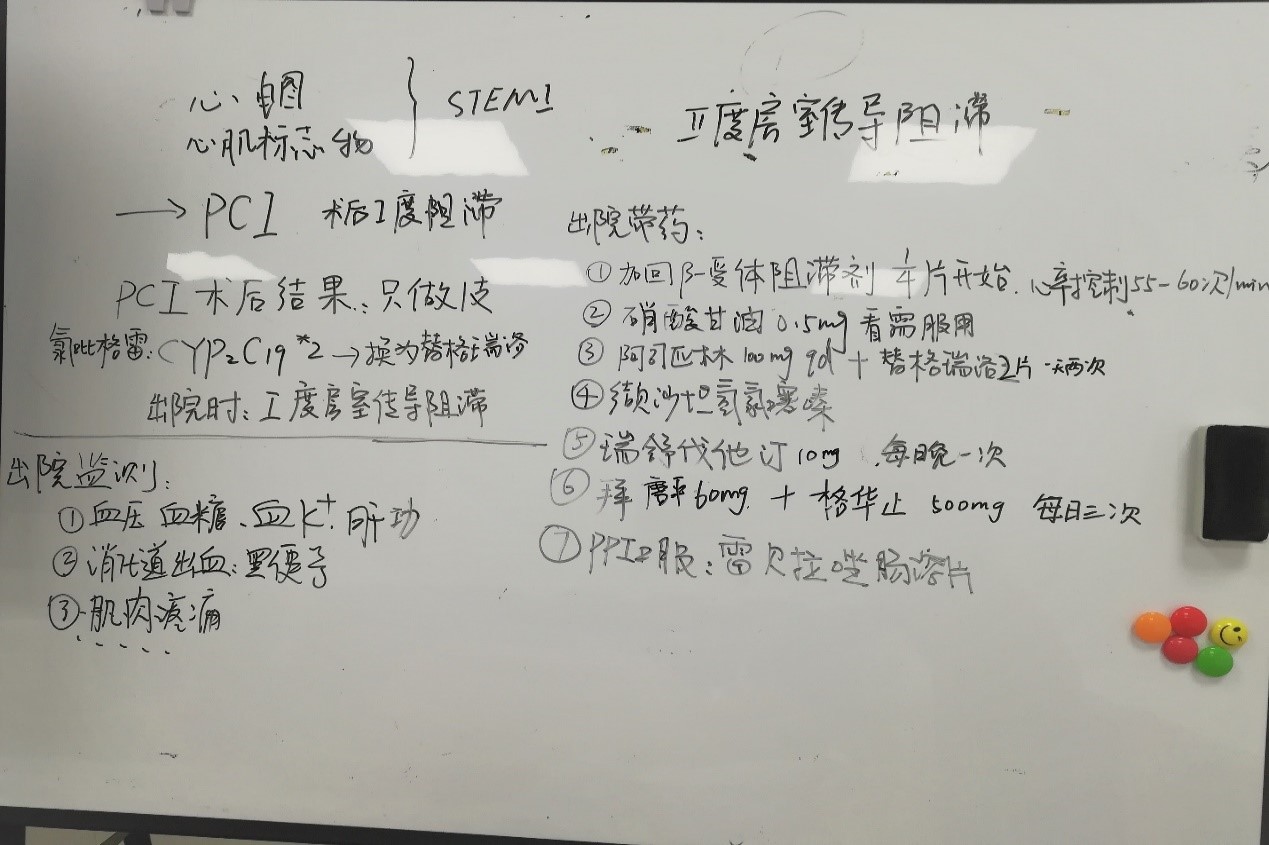 心电图
心肌标志物
} STEMI
→ PCI 术后I度阻滞
PCI术后结果:只做皮
氯吡格雷:CYP2C19*2→换为替格瑞洛
出院时:I度房室传导阻滞
出院监测:
①血压 血糖、血K+.肝功
②消化道出血:黑便子
③肌肉疼痛
.....
II度房室传导阻滞
出院带药:
①加回β-受体阻滞剂 1/4片开始.心率控制55-60次/min
②硝酸甘油0.5mg看需服用
③阿司匹林100mg qd + 替格瑞洛 片 一天两次
④缬沙坦氢氯噻嗪
⑤瑞舒伐他汀10mg 每日晚一次
⑥拜 60mg + 格华止 500mg 每日三次
⑦PPI 服:雷贝拉唑肠溶片